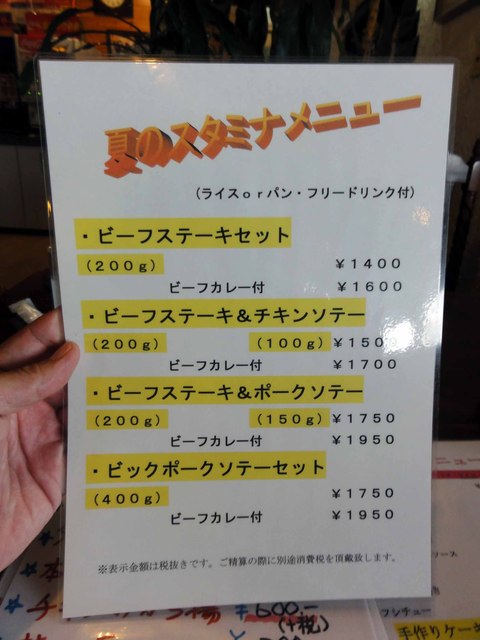 夏のスタミナメニュー
(ライスorパン・フリードリンク付)
・ビーフステーキセット
(200g) ¥1400
ビーフカレー付 ¥1600
・ビーフステーキ&チキンソテー
(200g) (100g) ¥150
ビーフカレー付 ¥1700
・ビーフステーキ&ポークソテー
(200g) (150g) ¥1750
ビーフカレー付 ¥1950
・ビックポークソテーセット
(400g) ¥1750
ビーフカレー付 ¥1950
※表示金額は税抜きです。ご精算の際に別途消費税を頂戴致します。
¥600.-
(+税)
手作りケー